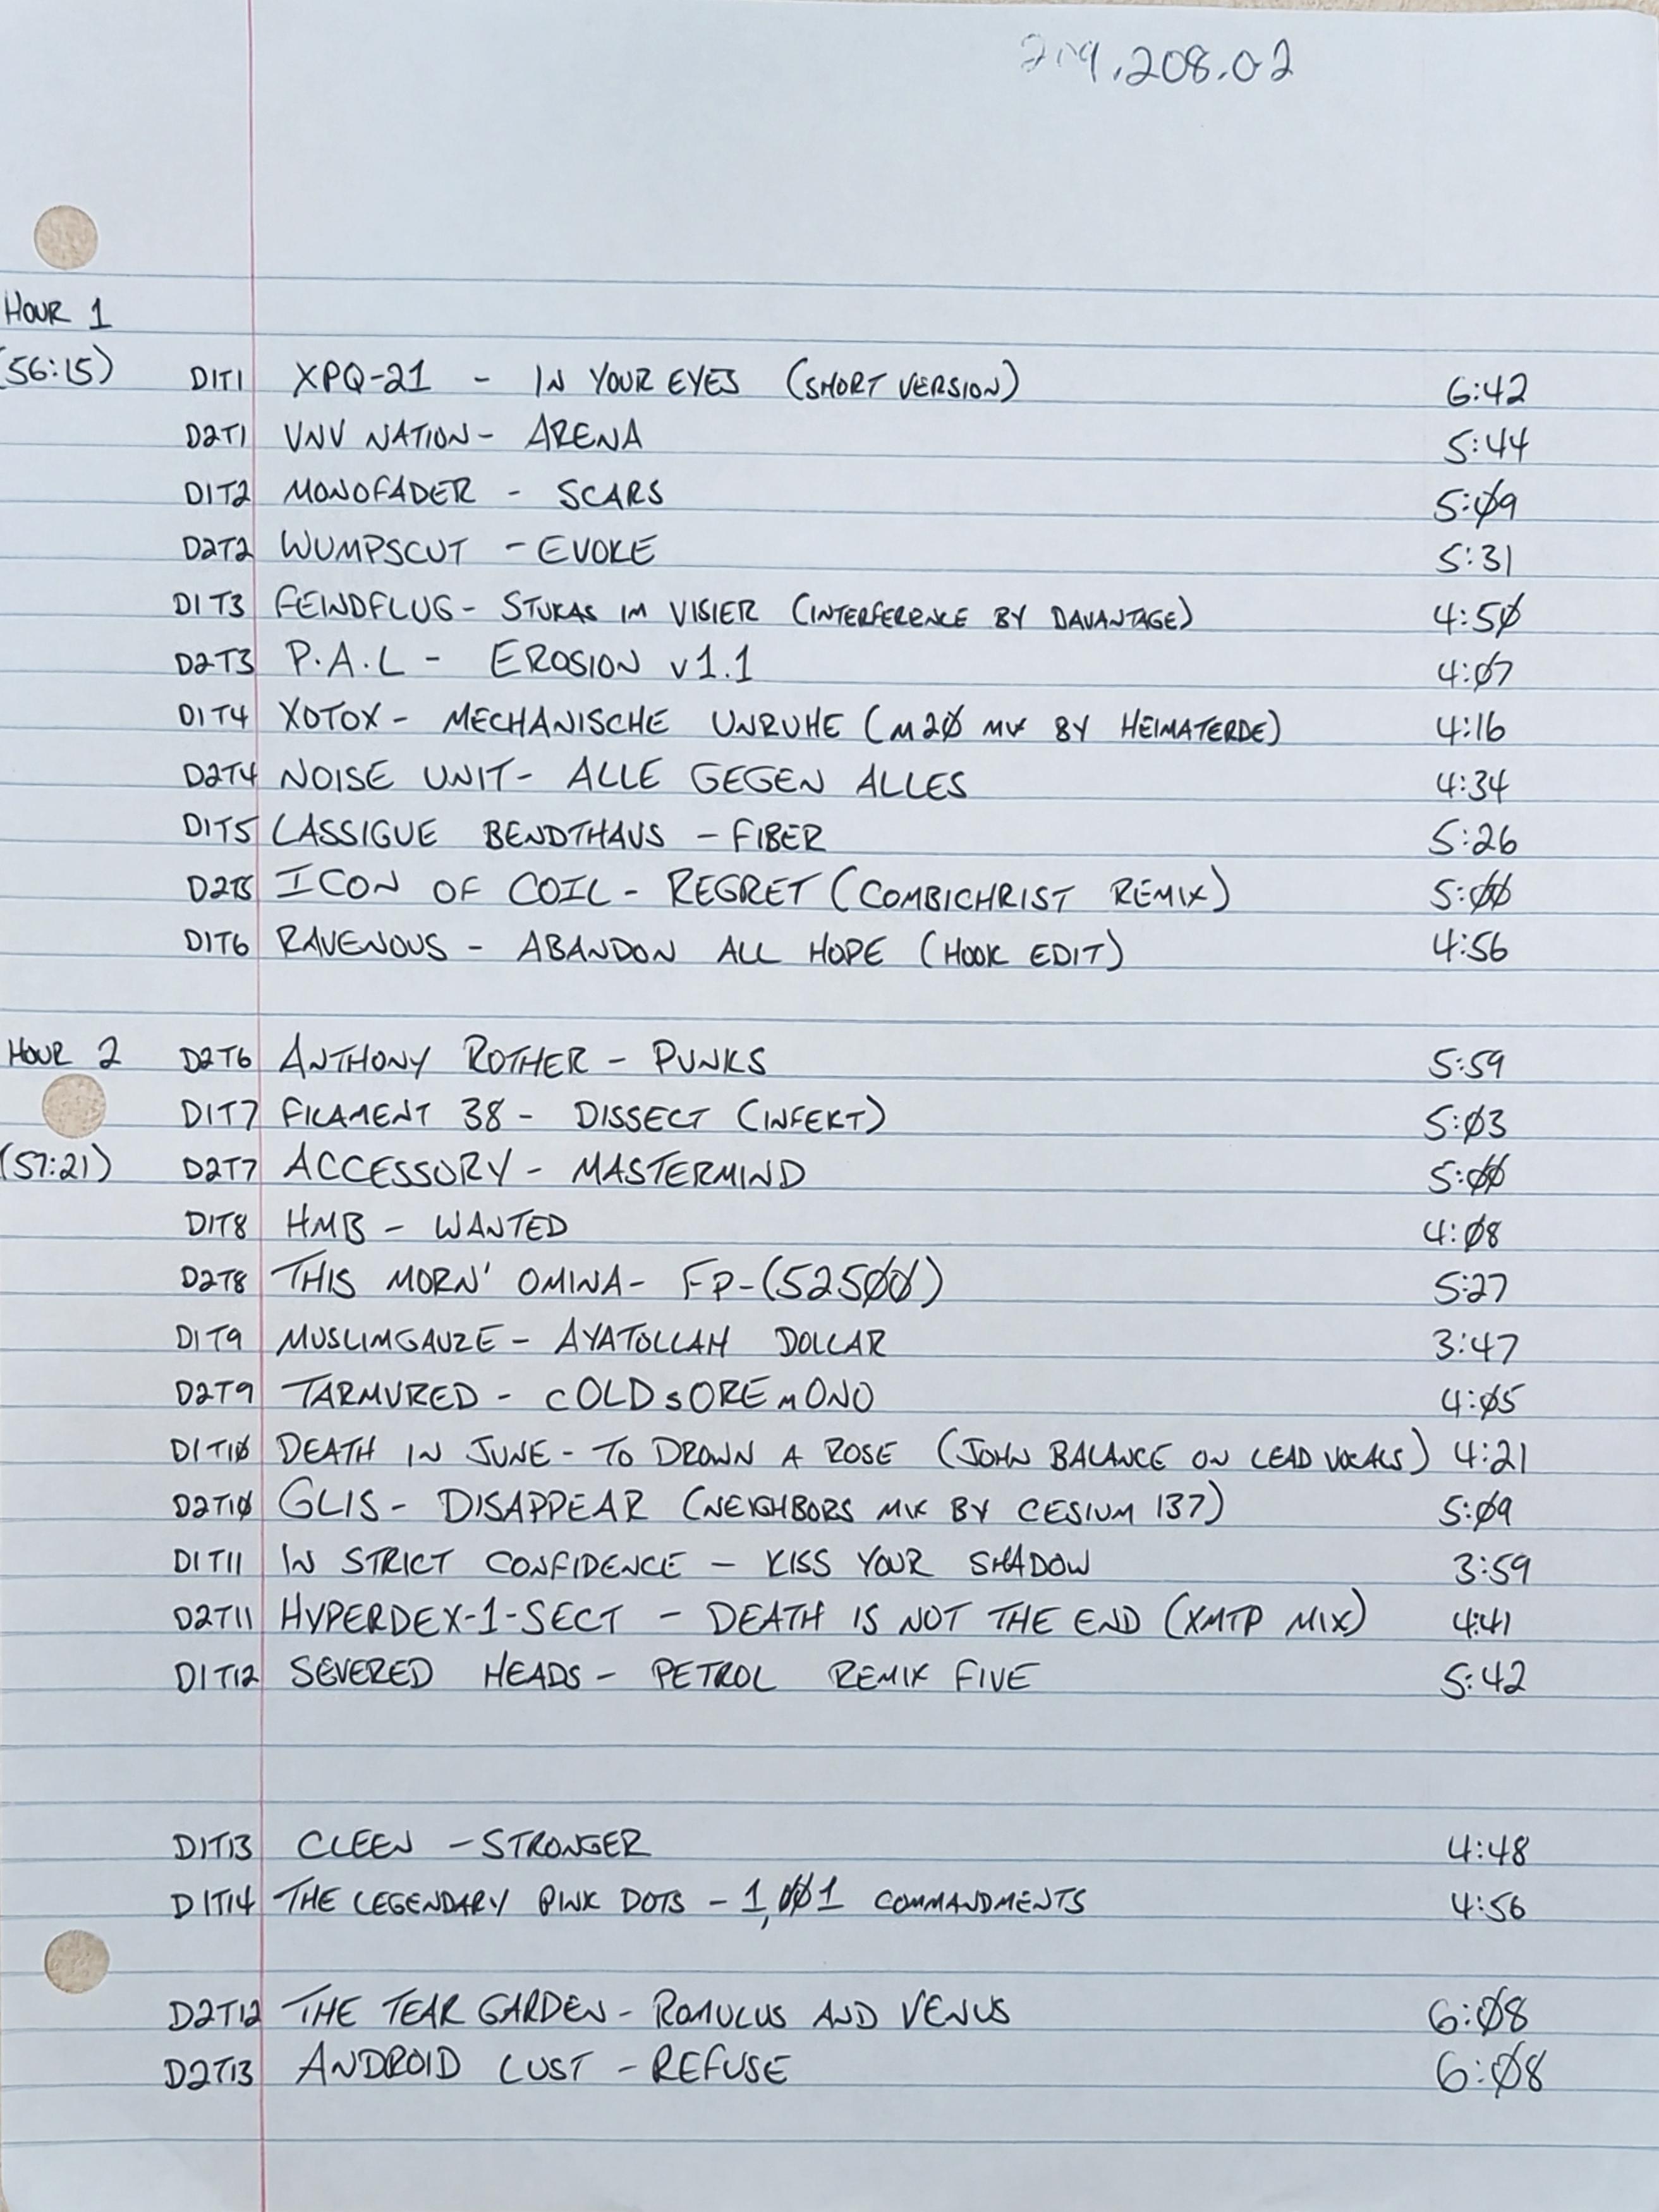 219.208.02
HOUR 1
(56:15) D1T1 XPQ-21 - IN YOUR EYES (SHORT VERSION) 6:42
D2T1 VNV NATION - ARENA 5:44
D1T2 MONOFADER - SCARS 5:09
D2T2 WUMPSCUT - EVOKE 5:31
D1T3 FEINDFLUG - STUKAS IM VISIER (INTERFERENCE BY DAVANTAGE) 4:50
D2T3 P.A.L - EROSION v1.1 4:07
D1T4 XOTOX - MECHANISCHE UNRUHE (M20 MIX BY HEIMATERDE) 4:16
D2T4 NOISE UNIT - ALLE GEGEN ALLES 4:34
D1T5 LASSIGUE BENDTHAUS - FIBER 5:26
D2T5 ICON OF COIL - REGRET (COMBICHRIST REMIX) 5:00
D1T6 RAVENOUS - ABANDON ALL HOPE (HOOK EDIT) 4:56
HOUR 2 D2T6 ANTHONY ROTHER - PUNKS 5:59
D1T7 FILAMENT 38 - DISSECT (INFEKT) 5:03
(57:21) D2T7 ACCESSORY - MASTERMIND 5:00
D1T8 HMB - WANTED 4:08
D2T8 THIS MORN' OMINA - FP-(52500) 5:27
D1T9 MUSLIMGAUZE - AYATOLLAH DOLLAR 3:47
D2T9 TARMVRED - cOLD sORE mONO 4:05
D1T10 DEATH IN JUNE - TO DROWN A ROSE (JOHN BALANCE ON LEAD VOCALS) 4:21
D2T10 GLIS - DISAPPEAR (NEIGHBORS MIX BY CESIUM 137) 5:09
D1T11 IN STRICT CONFIDENCE - KISS YOUR SHADOW 3:59
D2T11 HYPERDEX-1-SECT - DEATH IS NOT THE END (XMTP MIX) 4:41
D1T12 SEVERED HEADS - PETROL REMIX FIVE 5:42
D1T13 CLEEN - STRONGER 4:48
D1T14 THE LEGENDARY PINK DOTS - 1,001 COMMANDMENTS 4:56
D2T12 THE TEAR GARDEN - ROMULUS AND VENUS 6:08
D2T13 ANDROID LUST - REFUSE 6:08